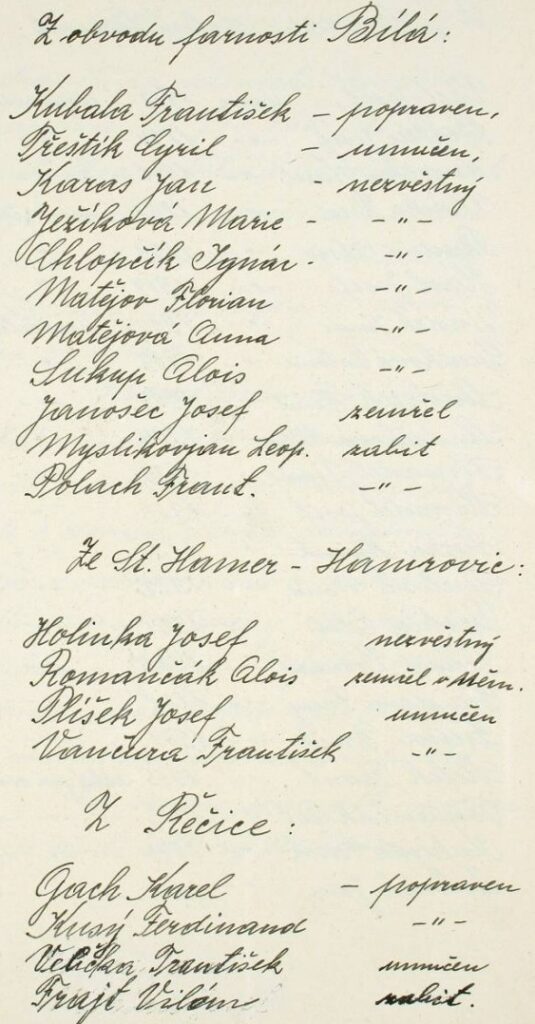 Z obvodu farnosti Bílá:
Kubala František – popraven,
Třeštík Cyril – umučen,
Karas Jan – nezvěstný
Ježíková Marie - –"–
Chlopčík Ignác - –"–
Matějov Florian –"–
Matějová Anna –"–
Sukup Alois –"–
Janošec Josef zemřel
Myslikovjan Leop. zabit
Polach Frant. –"–
Ze St. Hamer – Hamrovic:
Holinka Josef nezvěstný
Romančák Alois zemřel v Něm.
Plíšek Josef umučen
Vančura František –"–
Z Řečice:
Gach Karel – popraven
Kusý Ferdinand –"–
Velička František umučen
Frajt Vilém zabit.